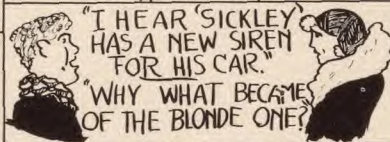 "I HEAR 'SICKLEY'
HAS A NEW SIREN
FOR HIS CAR."
"WHY WHAT BECAME
OF THE BLONDE ONE?"